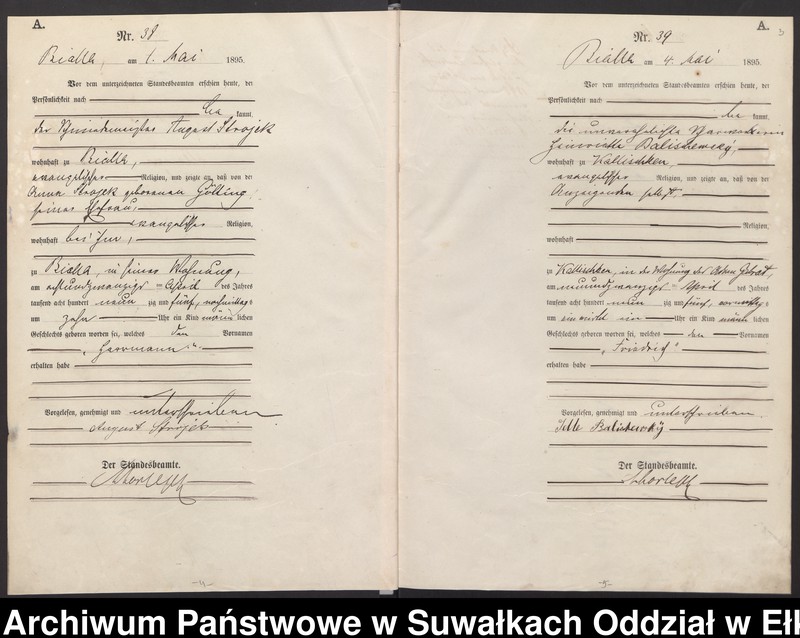 A.
Nr. 38
Bialla, am 1. Mai 1895.
Vor dem unterzeichneten Standesbeamten erschien heute, der
Persönlichkeit nach
be kannt,
der Schmiedemeister August Strojek
wohnhaft zu Bialla,
evangelischer Religion, und zeigte an, daß von der
Anna Strojek geborenen
seiner Ehefrau,
evangelischer Religion,
wohnhaft bei ihm,
zu Bialla, in seiner Wohnung,
am achtundzwanzigsten April des Jahres
tausend acht hundert neun zig und fünf, nachmittags
um zehn Uhr ein Kind männlichen
Geschlechts geboren worden sei, welches den Vornamen
„Herrmann“
erhalten habe
Vorgelesen, genehmigt und unterschrieben
August Strojek
Der Standesbeamte.
-4-
A.
3
Nr. 39
Bialla am 4. Mai 1895.
Vor dem unterzeichneten Standesbeamten erschien heute, der
Persönlichkeit nach
be kannt,
die unverehelichte
Henriette Baliszewsky,
wohnhaft zu Kallischken,
evangelischer Religion, und zeigte an, daß von der
Anzeigenden selbst,
Religion,
wohnhaft
zu Kallischken, in der Wohnung der
am neunundzwanzigsten April des Jahres
tausend acht hundert neun zig und fünf, vormittags
um ein Uhr ein Kind männlichen
Geschlechts geboren worden sei, welches den Vornamen
„Friedrich“
erhalten habe
Vorgelesen, genehmigt und unterschrieben
Der Standesbeamte.
-5-
Archiwum Państwowe w Suwałkach Oddział w Eł